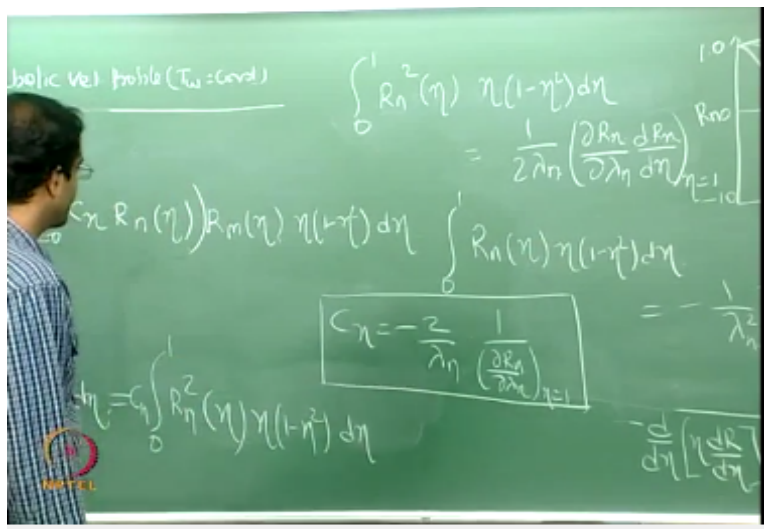 bolic vel proble (Tw = Const)
∫₀¹ Rn²(η) η(1-η²)dη
= 1/(2λn) (∂Rn/∂λn dRn/dη)η=1
1.0
Rn0
-1.0
Cn Rn(η)) Rm(η) η(1-η²) dη
∫₀¹ Rn(η) η(1-η²)dη
= - 1/λn²
Cn = - 2/λn 1/(∂Rn/∂λn)η=1
dη = Cn ∫₀¹ Rn²(η) η(1-η²) dη
-d/dη [η dR/dη]
NPTEL